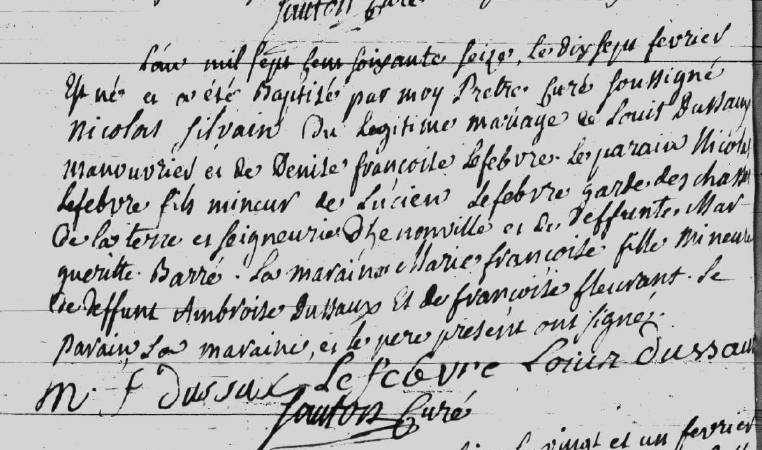 Sauton Curé
L'an mil sept cent soixante seize, le dix sept fevrier
Est né et a été Baptisé par moy Pretre Curé soussigné
Nicolas Silvain Du legitime mariage de Louis Dussaux
manouvrier et de Denise françoise Lefebvre. Le parain Nicolas
Lefebvre fils mineur de Lucien Lefebvre garde des chasses
De la terre et seigneurie Dhenonville et de Deffunte Mar-
gueritte Barré. La maraine Marie françoise fille Mineure
de Deffunt Ambroise Dussaux Et de françoise fleurant. Le
Parain, La maraine, et le pere present ont signé.
m. f Dussux Le febvre Louis dussaux
Sauton Curé
vingt et un fevrier